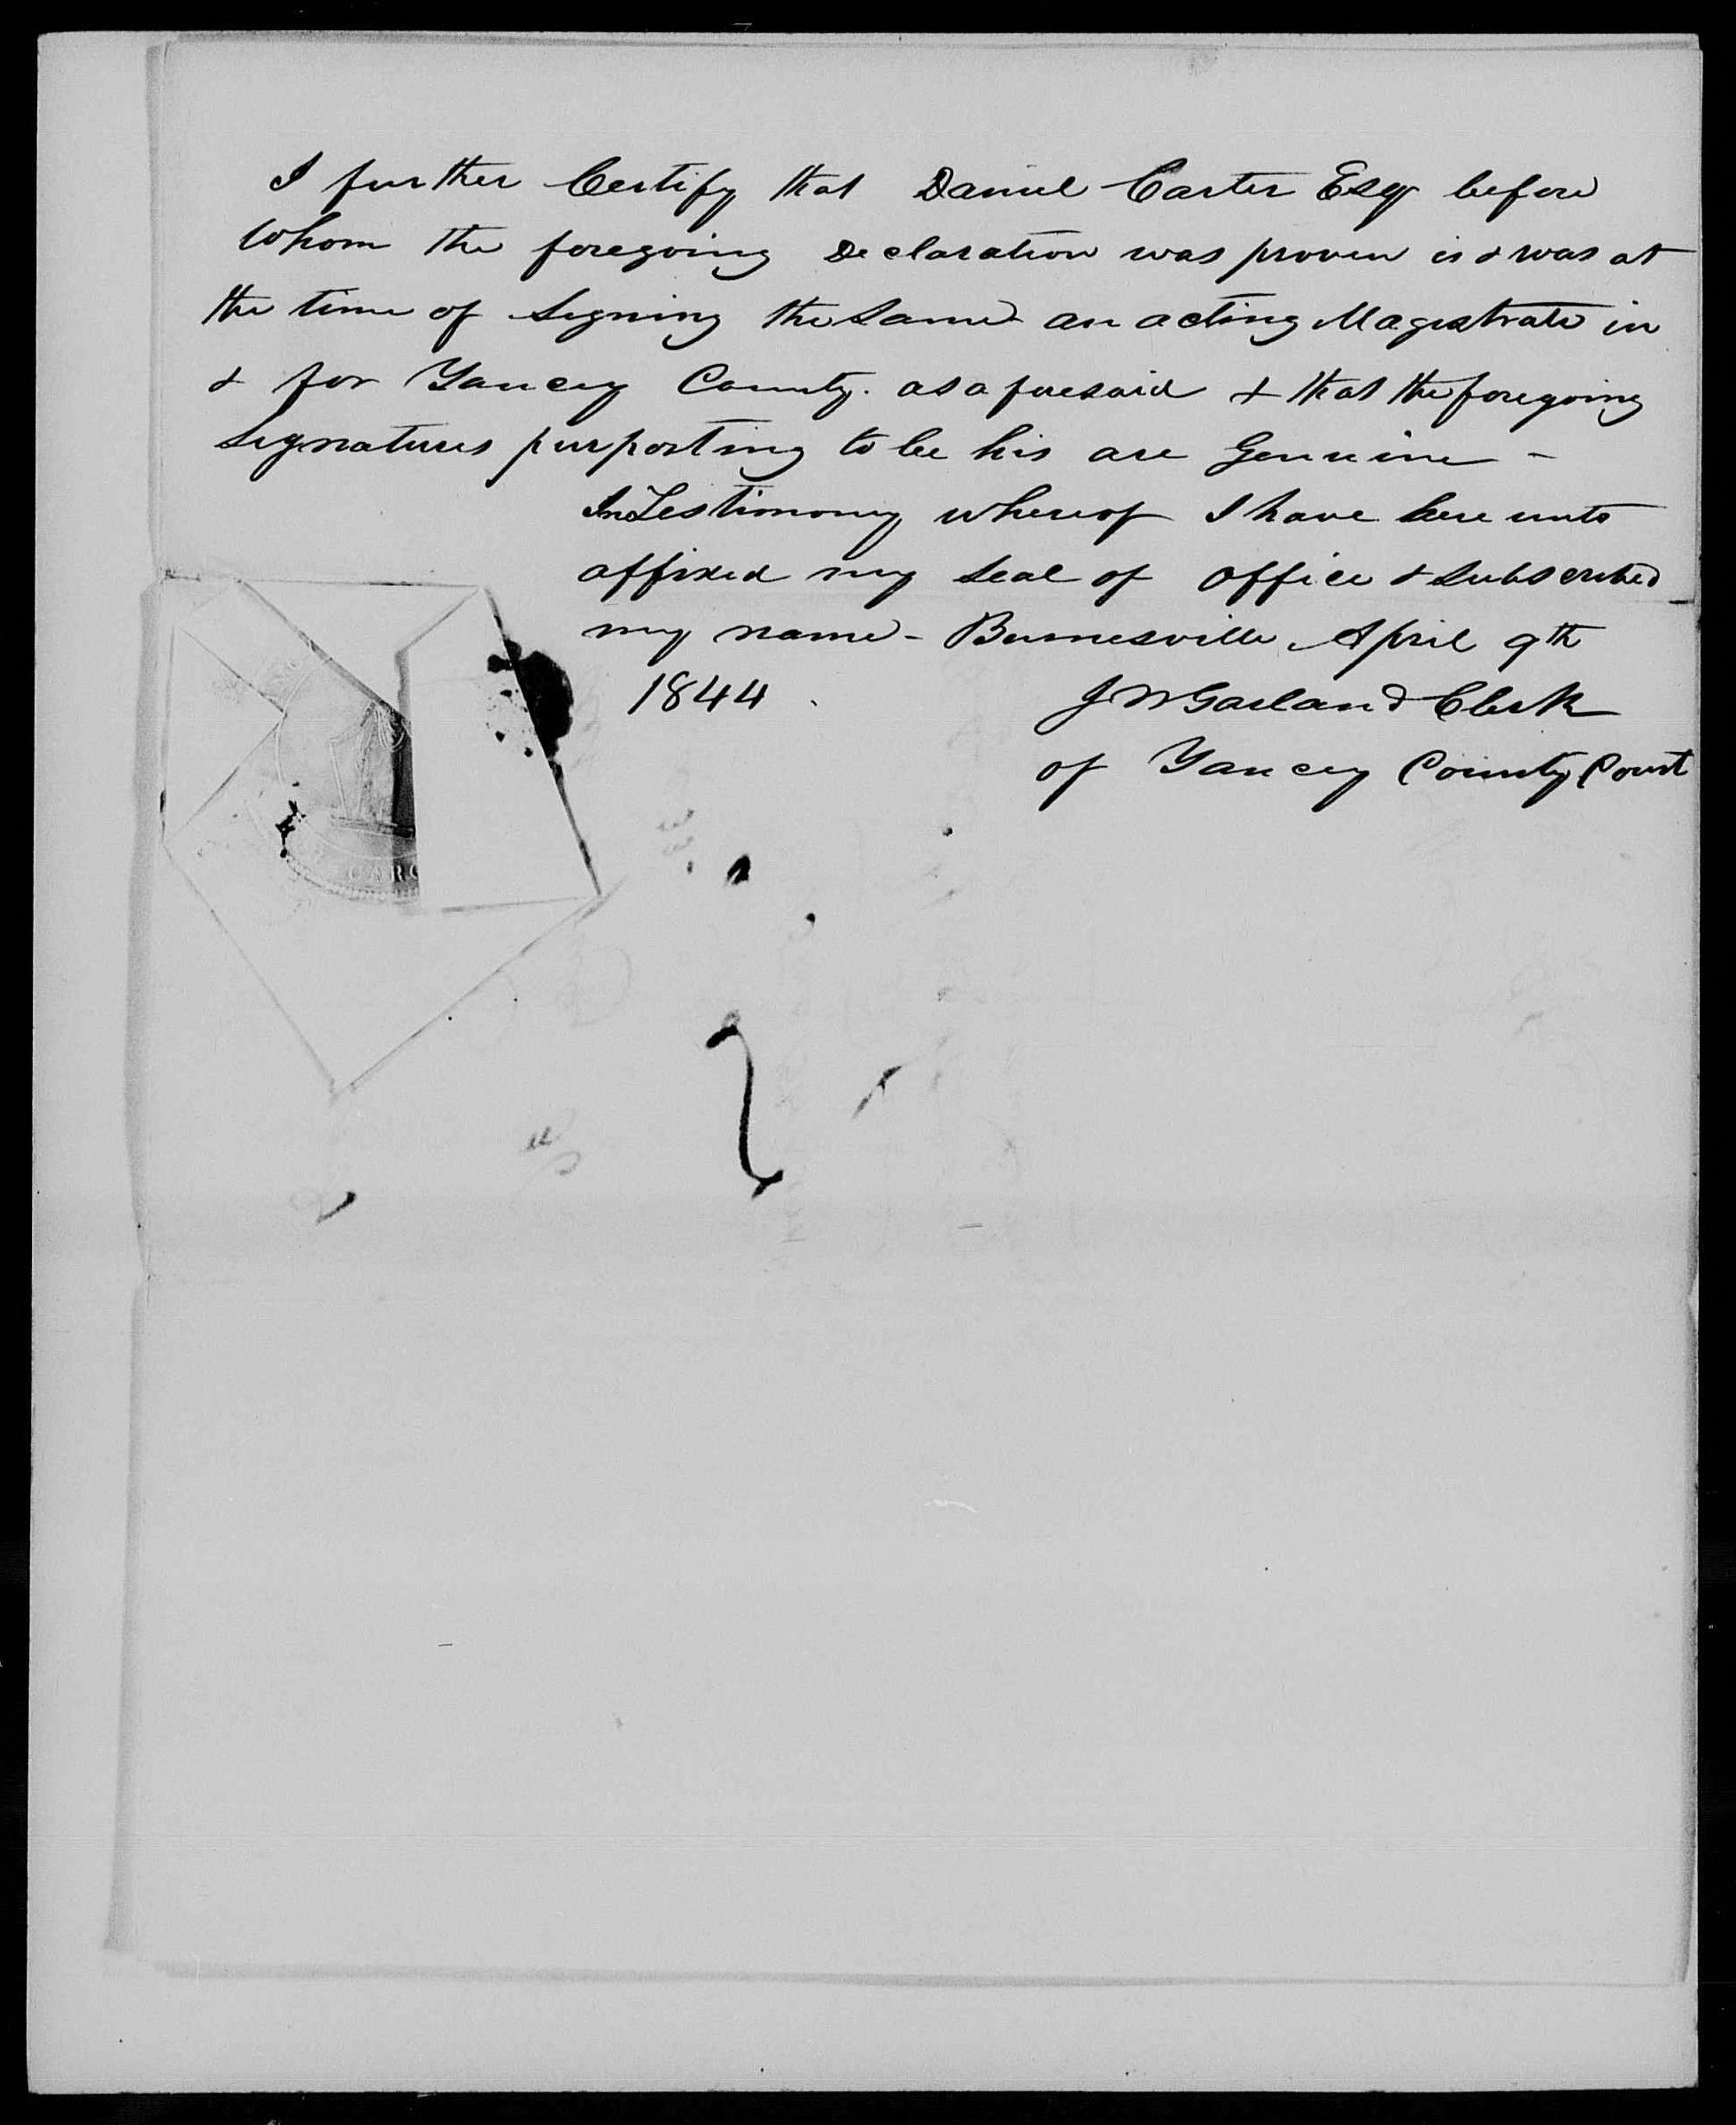 I further Certify that Daniel Carter Esqr before
whom the foregoing Declaration was proven is & was at
the time of signing the same an acting Magistrate in
& for Yancey County. as aforesaid & that the foregoing
signatures purporting to be his are Genuine -
In Testimony whereof I have here unto
affixed my seal of office & subscribed
my name - Burnesville April 9th
1844
J W Garland Clerk
of Yancey County Court
CARO